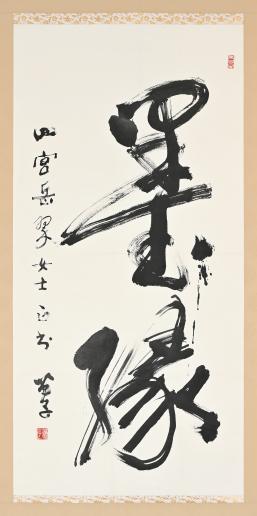 墨緣
山宮岳翠女士正書